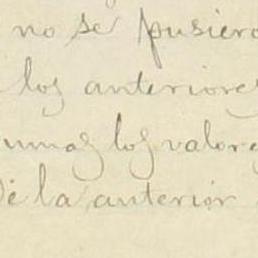 no se pusiero
los anteriores
umas los valore
de la anterior